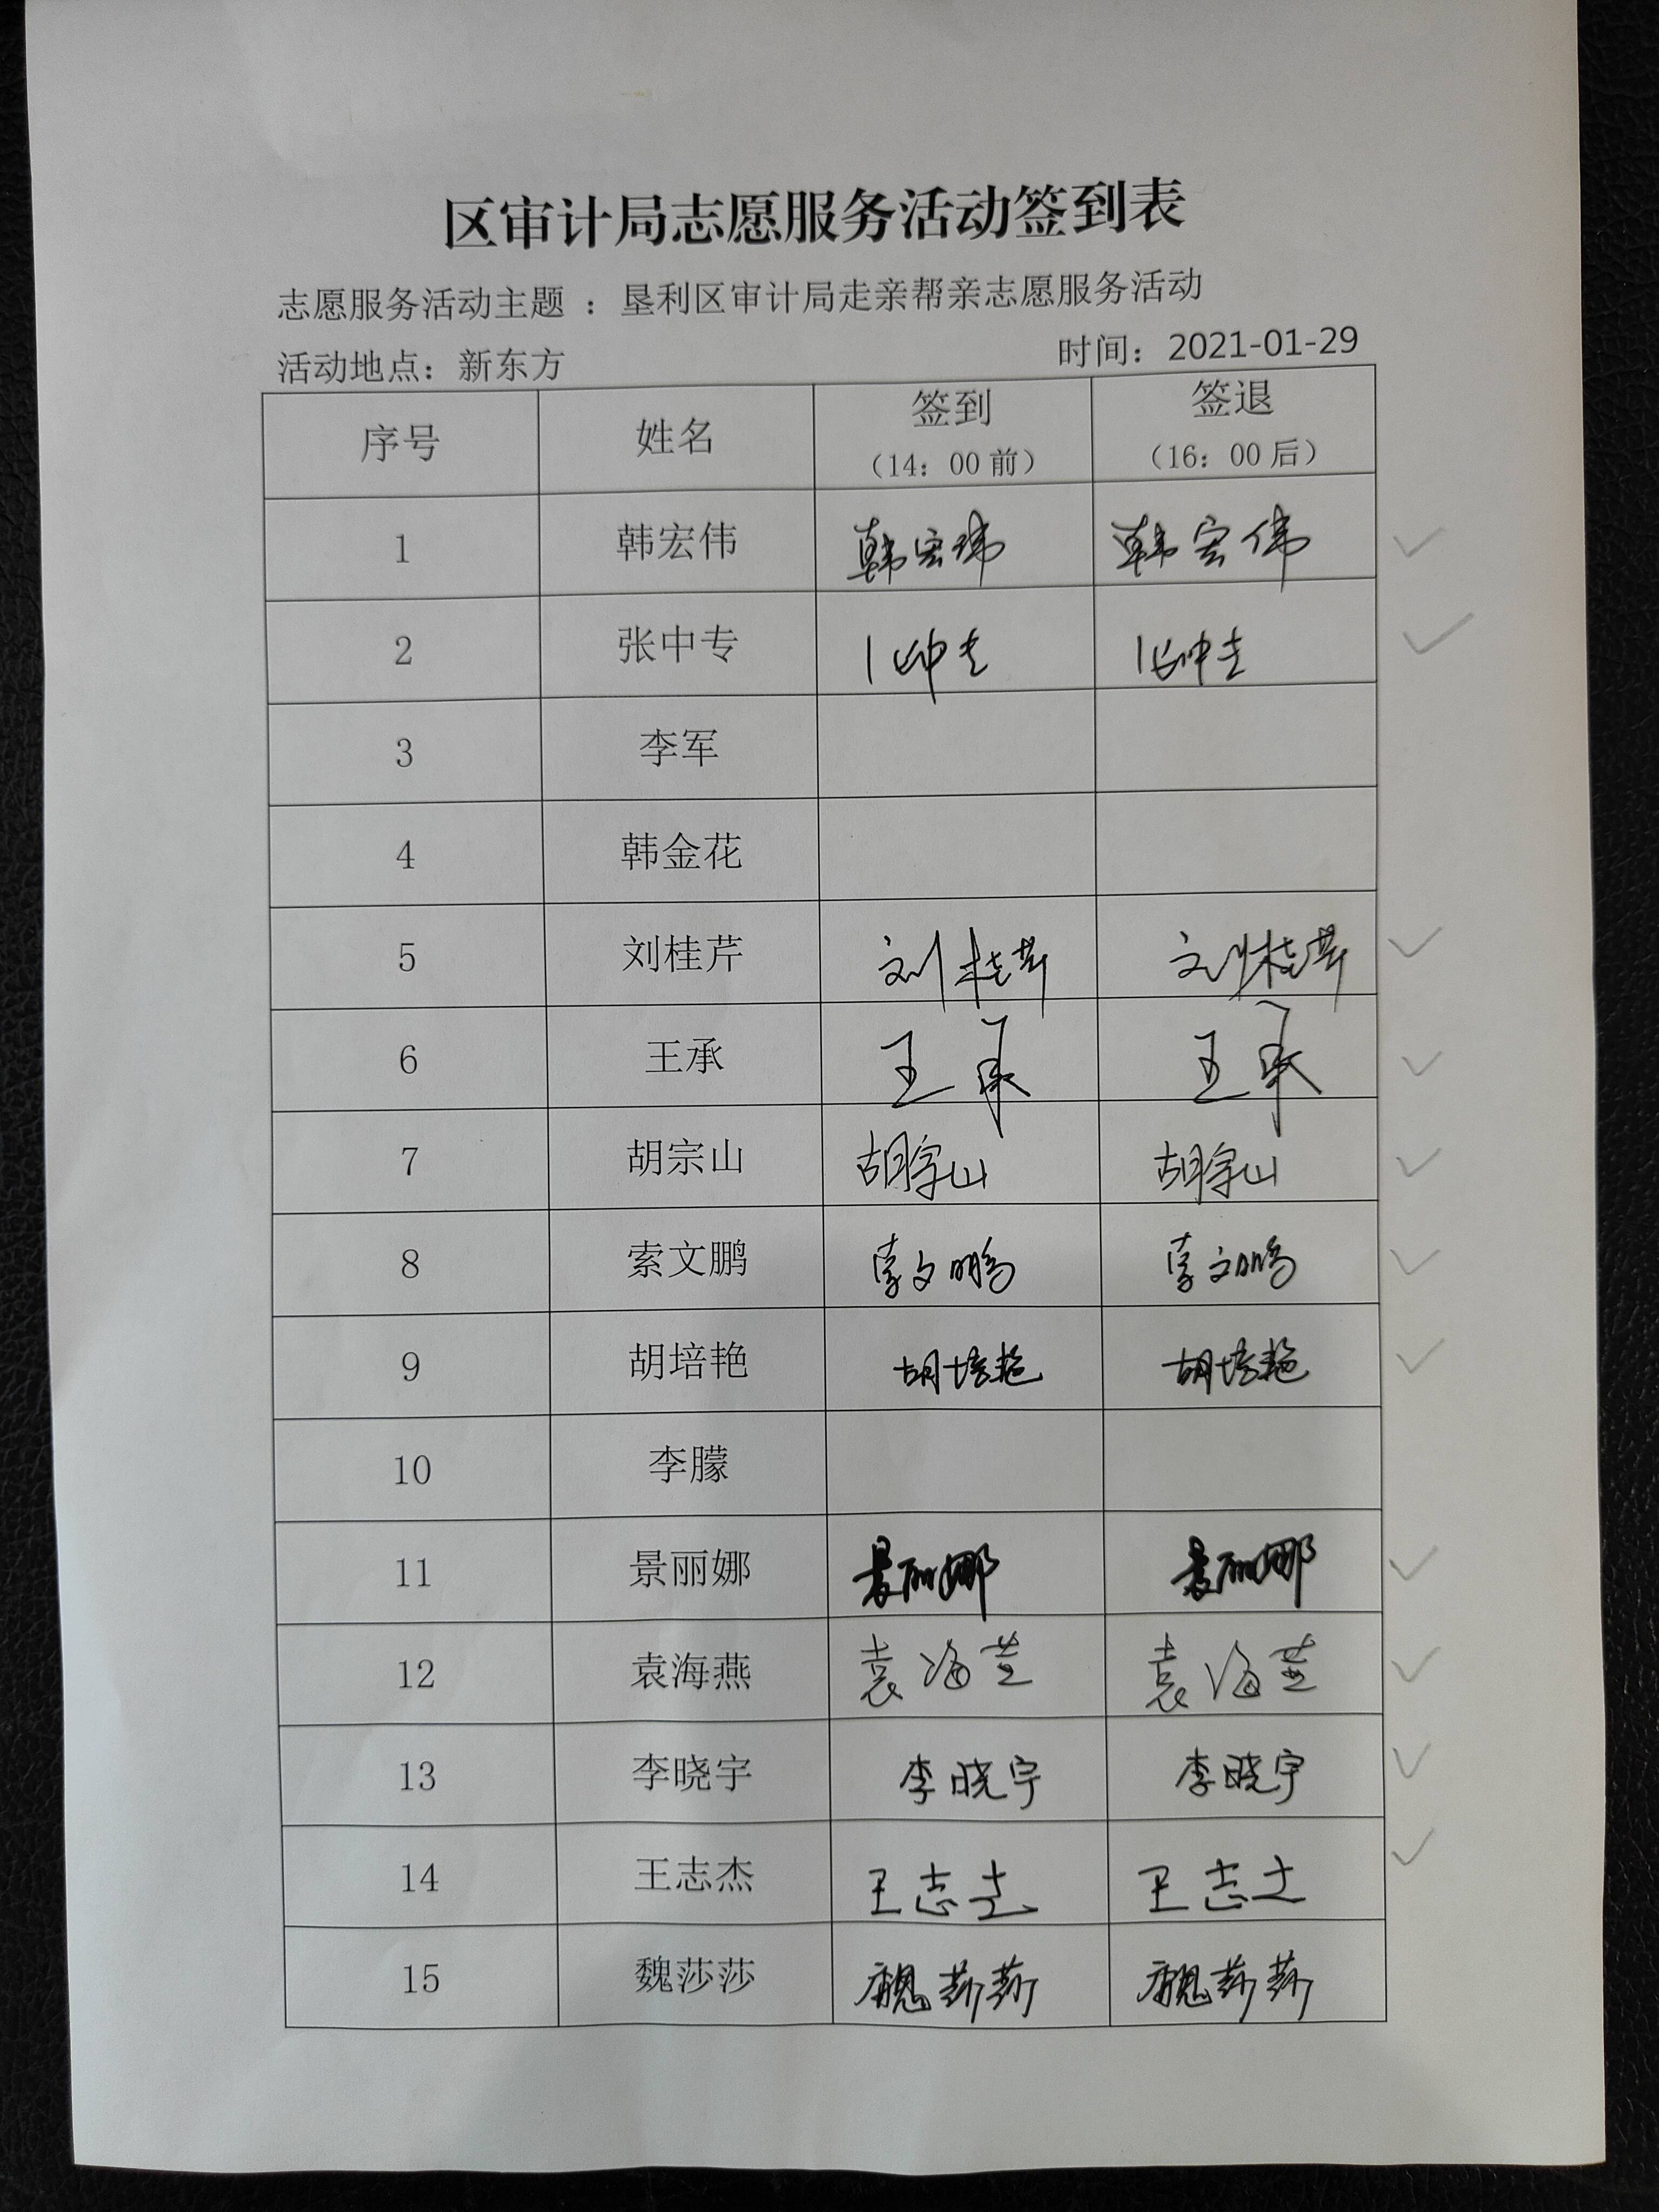 区审计局志愿服务活动签到表
志愿服务活动主题 ：垦利区审计局走亲帮亲志愿服务活动
活动地点：新东方 时间：2021-01-29
序号 姓名 签到 签退
（14：00 前） （16：00 后）
1 韩宏伟 韩宏伟 韩宏伟
2 张中专 张中专 张中专
3 李军
4 韩金花
5 刘桂芹 刘桂芹 刘桂芹
6 王承 王承 王承
7 胡宗山 胡宗山 胡宗山
8 索文鹏 索文鹏 索文鹏
9 胡培艳 胡培艳 胡培艳
10 李朦
11 景丽娜 景丽娜 景丽娜
12 袁海燕 袁海燕 袁海燕
13 李晓宇 李晓宇 李晓宇
14 王志杰 王志杰 王志杰
15 魏莎莎 魏莎莎 魏莎莎